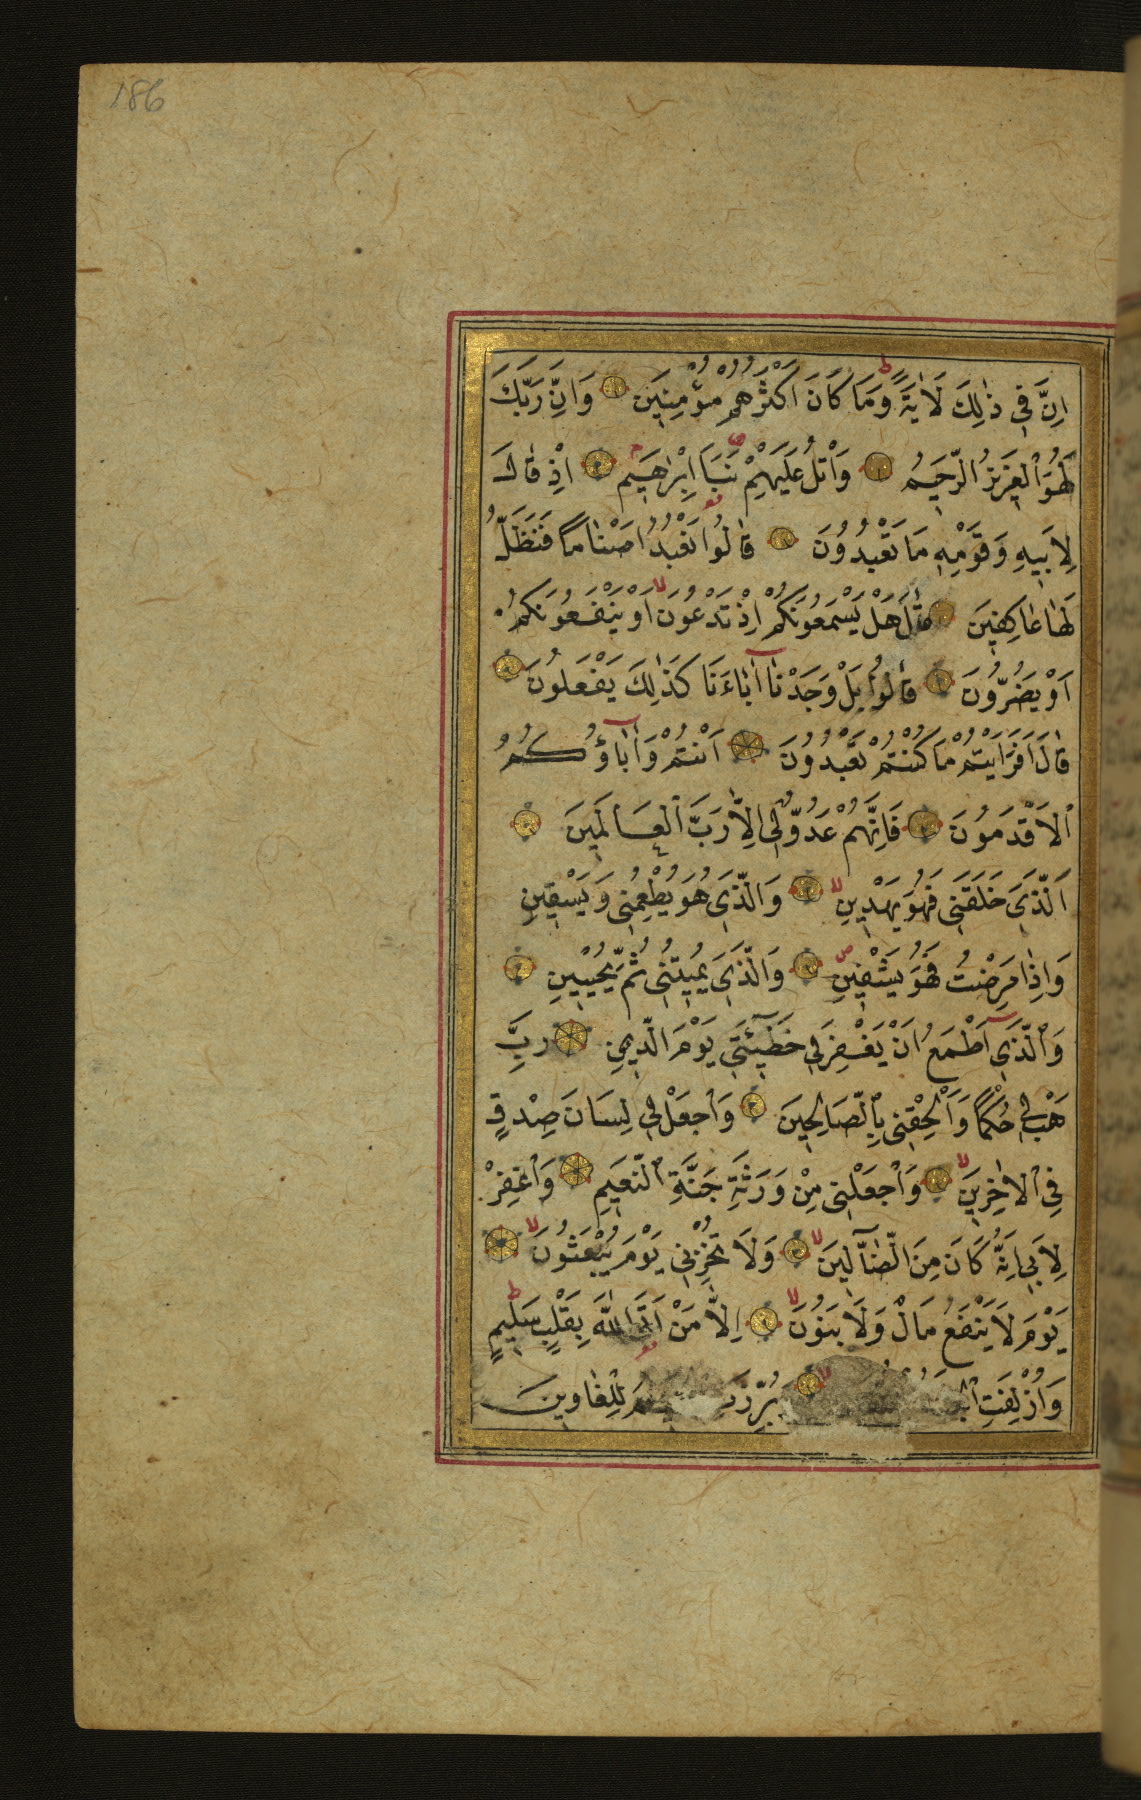 186
اِنَّ فِي ذٰلِكَ لَاٰيَةً وَمَا كَانَ اَكْثَرُهُمْ مُؤْمِنِينَ وَاِنَّ رَبَّكَ
لَهُوَ الْعَزِيزُ الرَّحِيمُ وَاتْلُ عَلَيْهِمْ نَبَاَ اِبْرٰهِيمَ اِذْ قَالَ
لِاَبِيهِ وَقَوْمِهِ مَا تَعْبُدُونَ قَالُوا نَعْبُدُ اَصْنَامًا فَنَظَلُّ
لَهَا عَاكِفِينَ قَالَ هَلْ يَسْمَعُونَكُمْ اِذْ تَدْعُونَ اَوْ يَنْفَعُونَكُمْ
اَوْ يَضُرُّونَ قَالُوا بَلْ وَجَدْنَا اٰبَاءَنَا كَذٰلِكَ يَفْعَلُونَ
قَالَ اَفَرَاَيْتُمْ مَا كُنْتُمْ تَعْبُدُونَ اَنْتُمْ وَاٰبَاؤُكُمُ
الْاَقْدَمُونَ فَاِنَّهُمْ عَدُوٌّ لِي اِلَّا رَبَّ الْعَالَمِينَ
اَلَّذِي خَلَقَنِي فَهُوَ يَهْدِينِ وَالَّذِي هُوَ يُطْعِمُنِي وَيَسْقِينِ
وَاِذَا مَرِضْتُ فَهُوَ يَشْفِينِ وَالَّذِي يُمِيتُنِي ثُمَّ يُحْيِينِ
وَالَّذِي اَطْمَعُ اَنْ يَغْفِرَ لِي خَطِيئَتِي يَوْمَ الدِّينِ رَبِّ
هَبْ لِي حُكْمًا وَاَلْحِقْنِي بِالصَّالِحِينَ وَاجْعَلْ لِي لِسَانَ صِدْقٍ
فِي الْاٰخِرِينَ وَاجْعَلْنِي مِنْ وَرَثَةِ جَنَّةِ النَّعِيمِ وَاغْفِرْ
لِاَبِي اِنَّهُ كَانَ مِنَ الضَّالِّينَ وَلَا تُخْزِنِي يَوْمَ يُبْعَثُونَ
يَوْمَ لَا يَنْفَعُ مَالٌ وَلَا بَنُونَ اِلَّا مَنْ اَتَى اللّٰهَ بِقَلْبٍ سَلِيمٍ
وَاُزْلِفَتِ لِلْغَاوِينَ